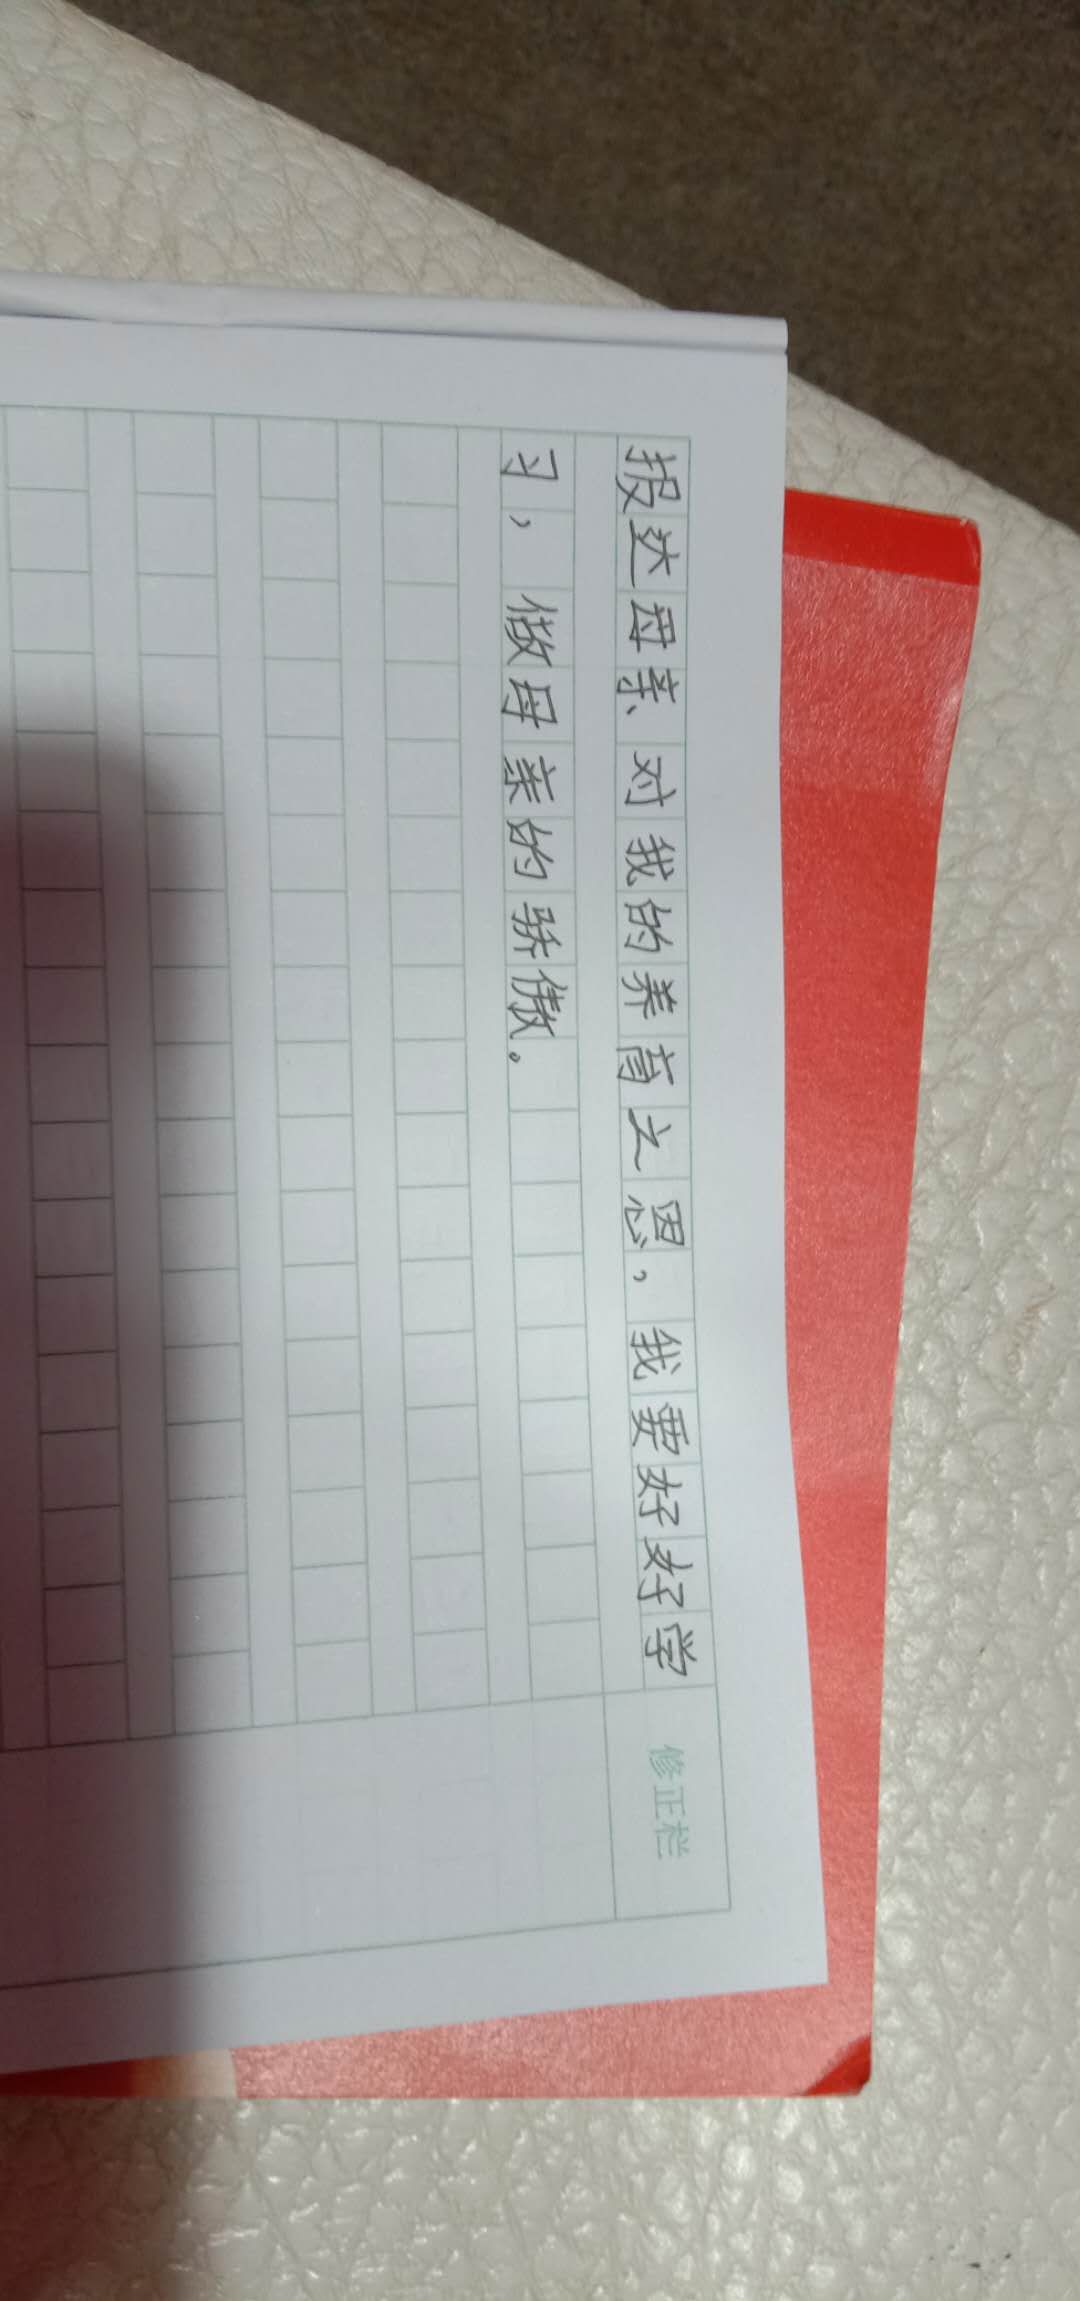 报达母亲对我的养育之恩，我要好好学
习，做母亲的骄傲。
修正栏